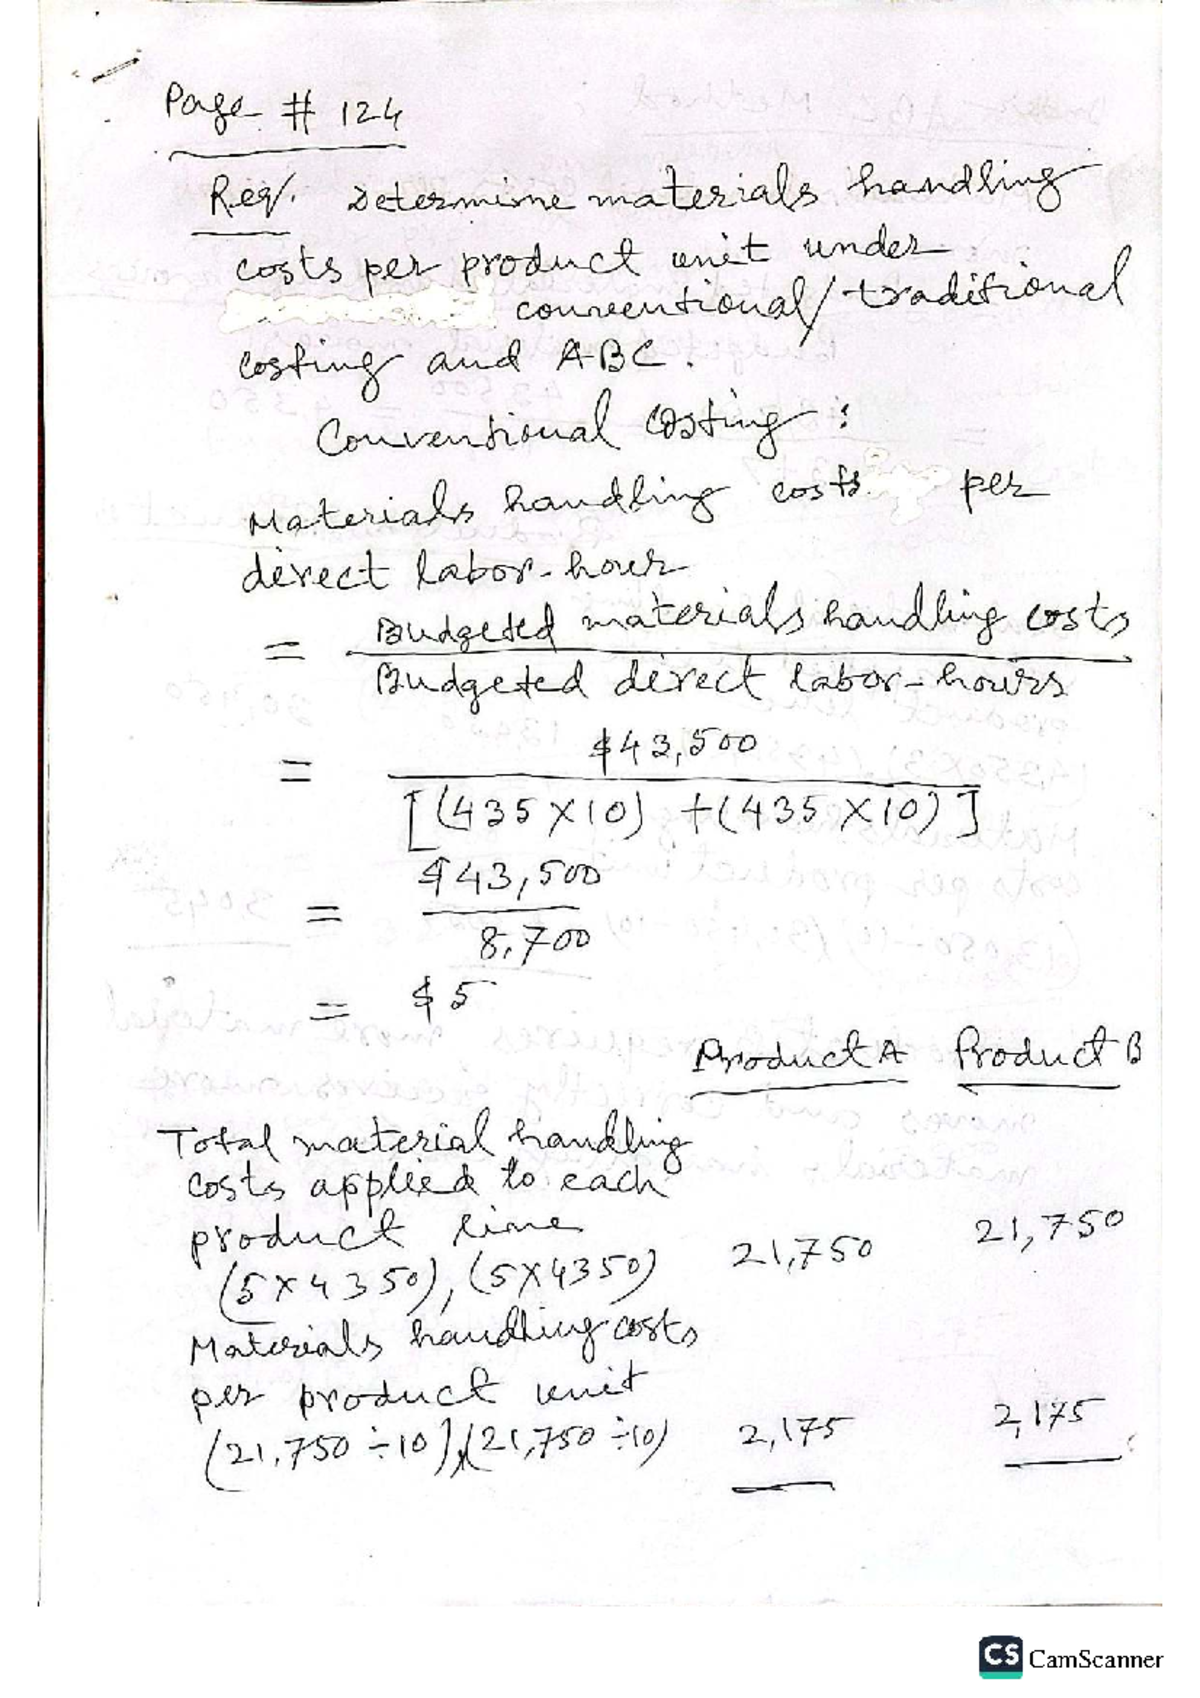 Page # 124
Req. Determine materials handling
costs per product unit under
conventional/traditional
costing and ABC.
Conventional Costing:
Materials handling costs per
direct labor-hour
= Budgeted materials handling costs
Budgeted direct labor-hours
= $43,500
[(435X10) +(435X10)]
= $43,500
8,700
= $5
Product A Product B
Total material handling
costs applied to each
product line
(5X4350), (5X4350) 21,750 21,750
Materials handling costs
per product unit
(21,750 ÷10),(21,750 ÷10) 2,175 2,175
CS CamScanner